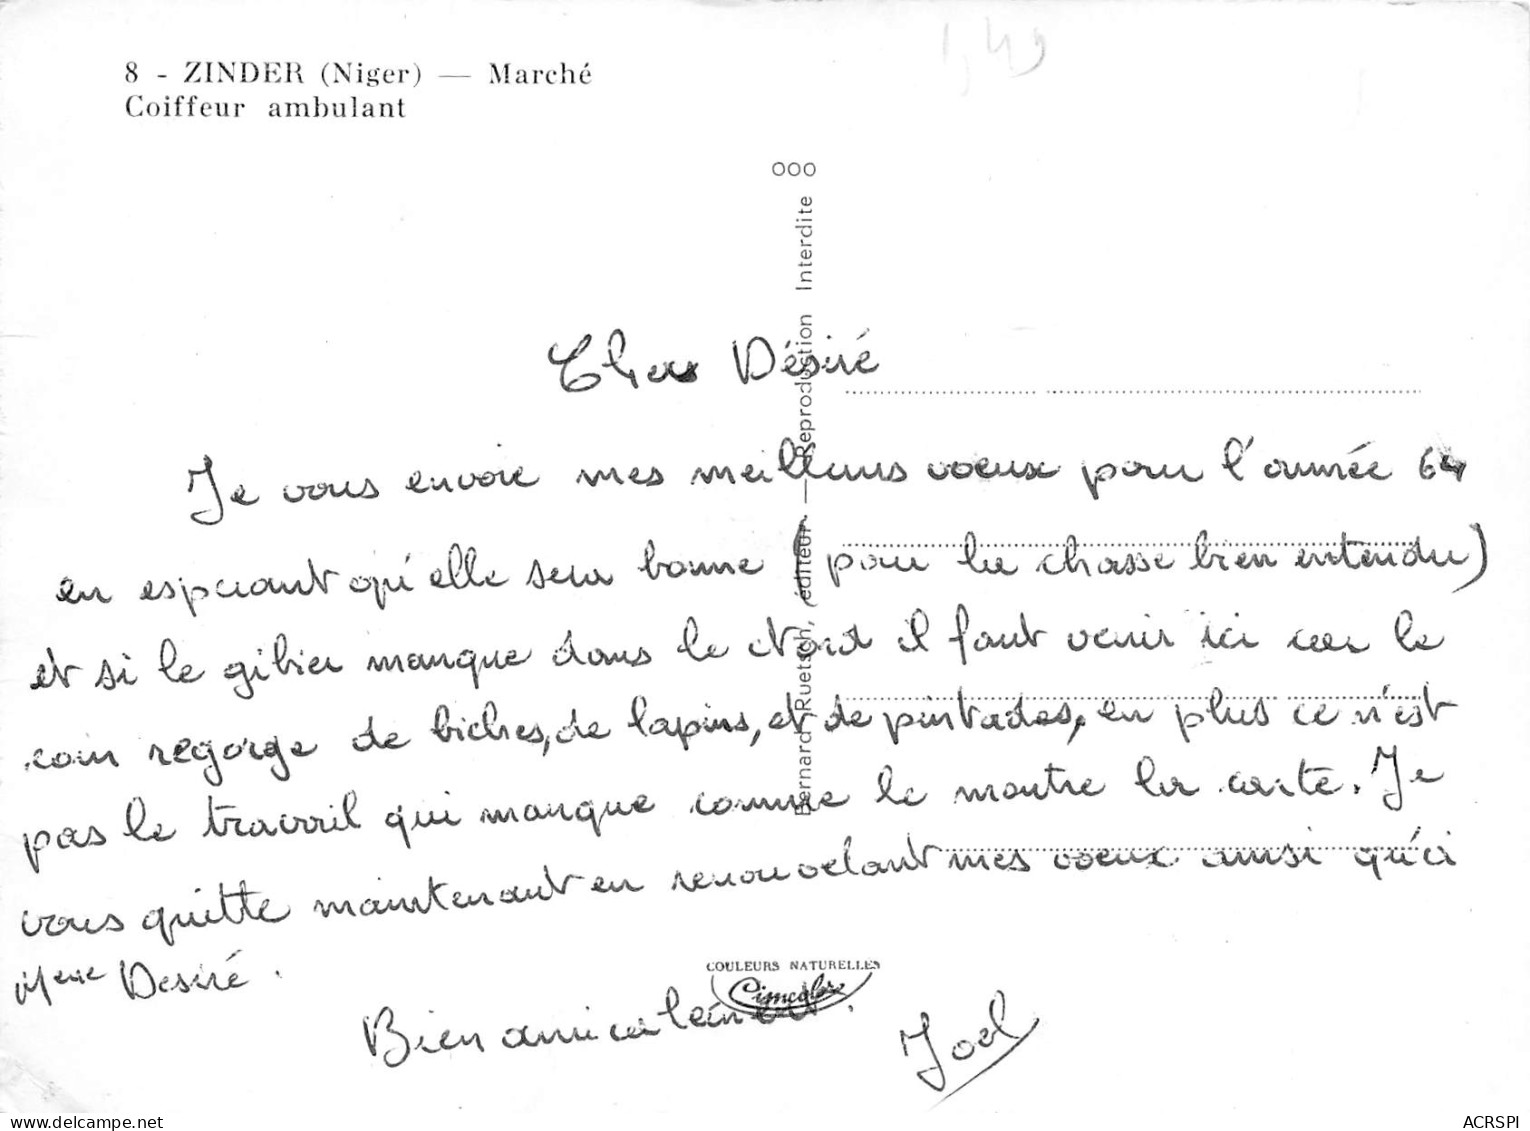 8 - ZINDER (Niger) — Marché
Coiffeur ambulant
1,49
000
Bernard Ruetsch, éditeur. — Reproduction Interdite
Cher Désiré
Je vous envoie mes meilleurs voeux pour l'année 64
en espérant qu'elle sera bonne (pour la chasse bien entendu)
et si le gibier manque dans le Nord il faut venir ici car le
coin regorge de biches, de lapins, et de pintades, en plus ce n'est
pas le travail qui manque comme le montre la carte. Je
vous quitte maintenant en renouvelant mes voeux ainsi qu'à
Mme Desiré.
COULEURS NATURELLES
Cimcolor
Bien amicalement.
Joël
ACRSPI